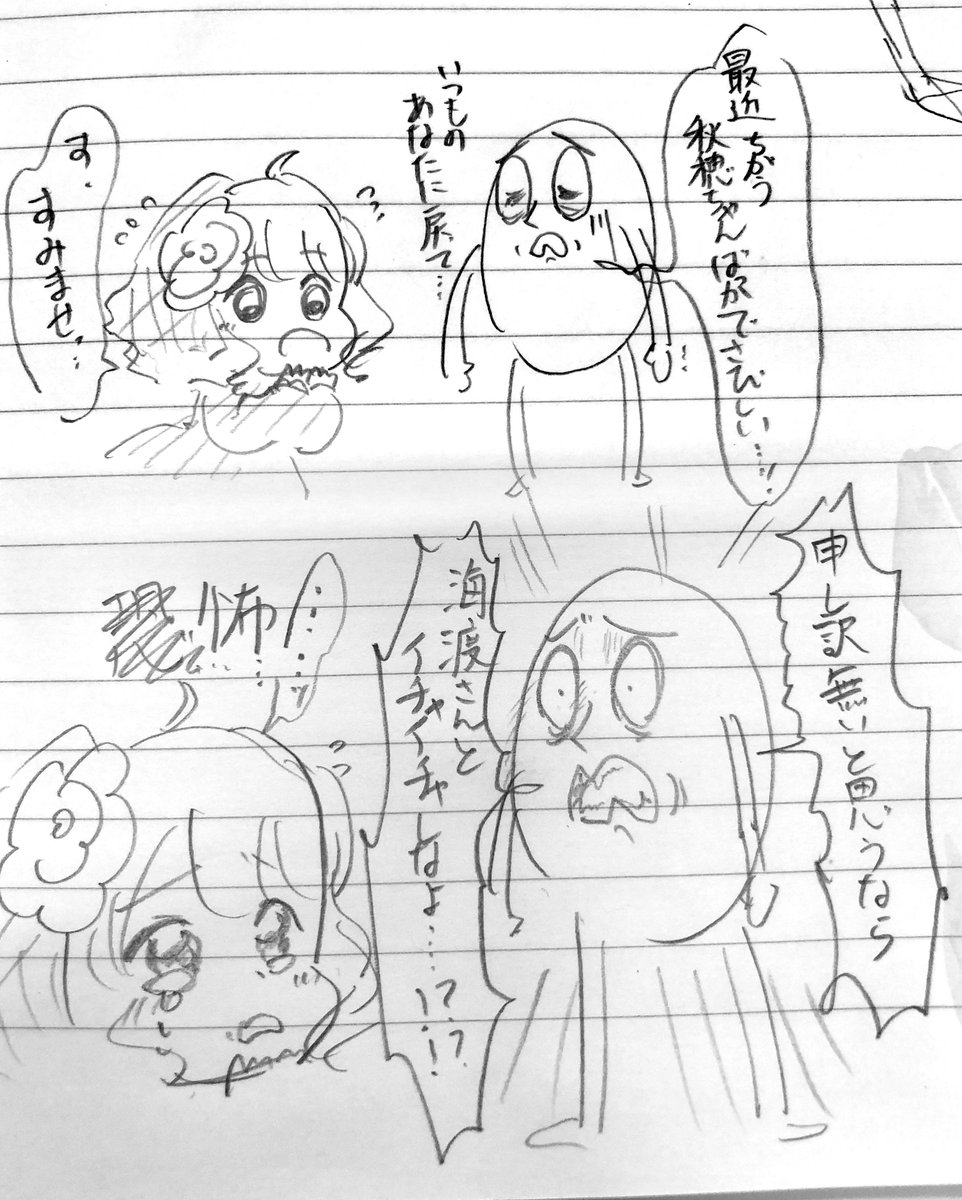 最近ちがう
秋穂ちゃんばかでさびしい…!
いつもの
あなたに戻て…
す、すみませ…
申し訳無いと思うなら
海渡さんと
イチャイチャしなよ……!?!?
……ッ
怖…